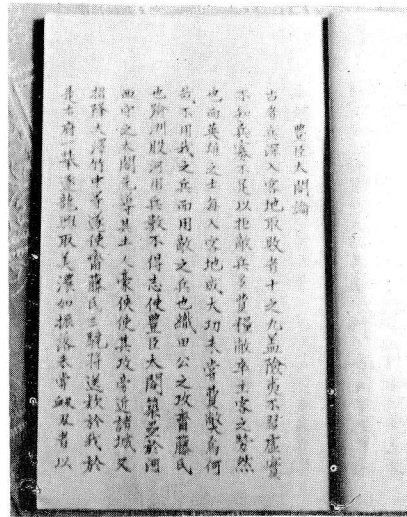 豐臣太閤論
古者兵深入客地取敗者十之九蓋險夷不習虛實
不知兵寡不足以拒敵兵多費糧敵率主客之勢然
也而英雄之士每入客地成大功未嘗費弊焉何
哉不用我之兵而用敵之兵也織田公之攻齋藤氏
也踰洲股河用兵數不得志使豐臣太閤築壘於河
西守之太閤先導其土人豪俠使其攻旁近諸城又
招降大澤竹中等遂使齋藤氏三驍將送款於我於
是士府一築逐龍興取美濃如振落未嘗衂刃者以